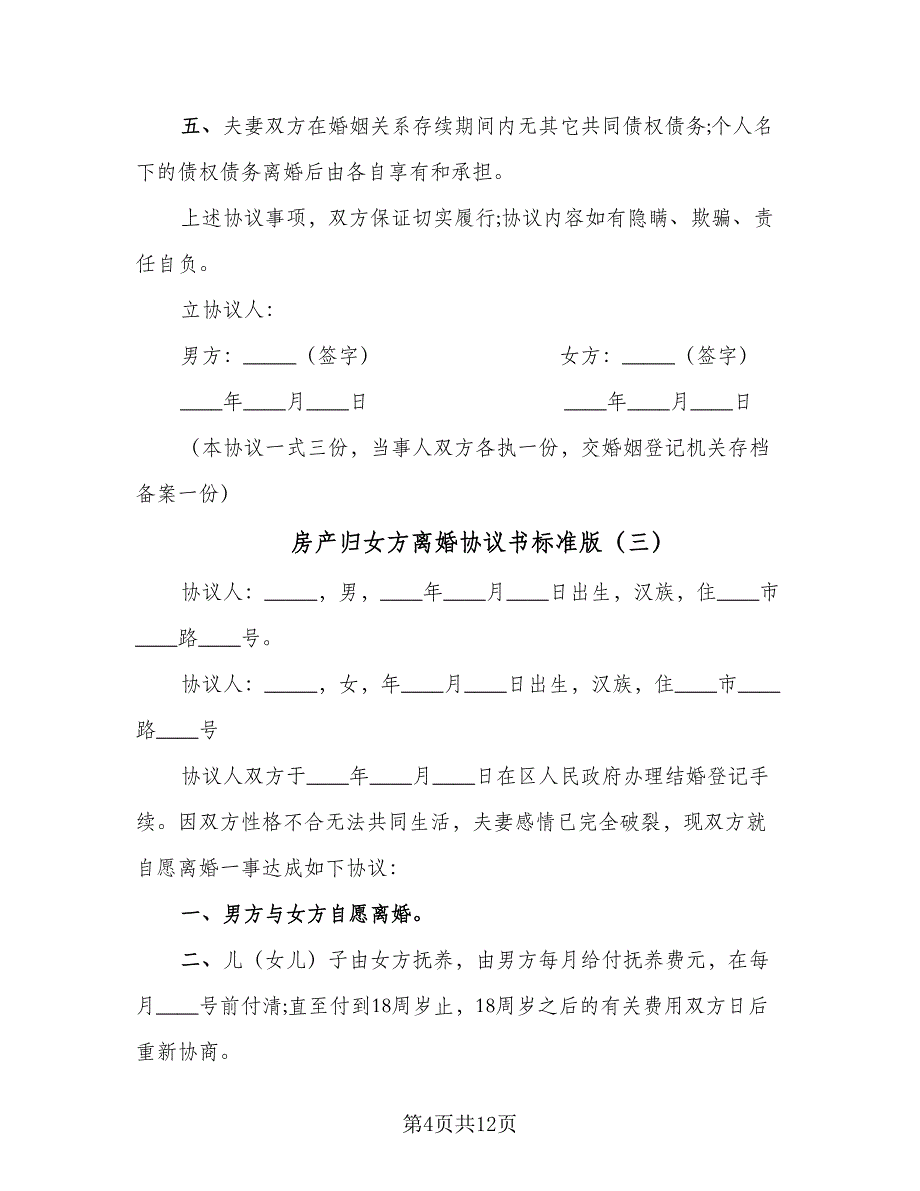 五、夫妻双方在婚姻关系存续期间内无其它共同债权债务;个人名
下的债权债务离婚后由各自享有和承担。
上述协议事项，双方保证切实履行;协议内容如有隐瞒、欺骗、责
任自负。
立协议人：
男方：_____（签字） 女方：_____（签字）
____年____月____日 ____年____月____日
（本协议一式三份，当事人双方各执一份，交婚姻登记机关存档
备案一份）
房产归女方离婚协议书标准版（三）
协议人：_____，男，____年____月____日出生，汉族，住____市
____路____号。
协议人：_____，女，年____月____日出生，汉族，住____市____
路____号
协议人双方于____年____月____日在区人民政府办理结婚登记手
续。因双方性格不合无法共同生活，夫妻感情已完全破裂，现双方就
自愿离婚一事达成如下协议：
一、男方与女方自愿离婚。
二、儿（女儿）子由女方抚养，由男方每月给付抚养费元，在每
月____号前付清;直至付到18周岁止，18周岁之后的有关费用双方日后
重新协商。
第4页共12页